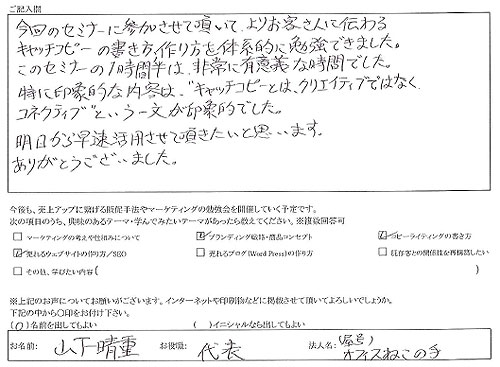 ご記入欄
今回のセミナーに参加させて頂いて、よりお客さんに伝わる
キャッチコピーの書き方、作り方を体系的に勉強できました。
このセミナーの1時間半は、非常に有意義な時間でした。
特に印象的な内容は、"キャッチコピーとは、クリエイティブではなく、
コネクティブ"という一文が印象的でした。
明日から早速活用させて頂きたいと思います。
ありがとうございました。
今後も、売上アップに繋げる販促手法やマーケティングの勉強会を開催していく予定です。
次の項目のうち、興味のあるテーマ・学んでみたいテーマがあったら教えてください。※複数回答可
マーケティングの考えや仕組みについて ブランディング戦略・商品コンセプト コピーライティングの書き方
売れるウェブサイトの作り方/SEO 売れるブログ(Word Press)の作り方 既存客との関係性を再構築したい
その他、学びたい内容( )
※上記のお声についてお願いがございます。インターネットや印刷物などに掲載させて頂いてよろしいでしょうか。
下記の中から〇印をお付け下さい。
(〇)名前を出してもよい ( )イニシャルなら出してもよい
お名前: 山下晴重 お役職: 代表 法人名: (屋号)
オフィスねこの手